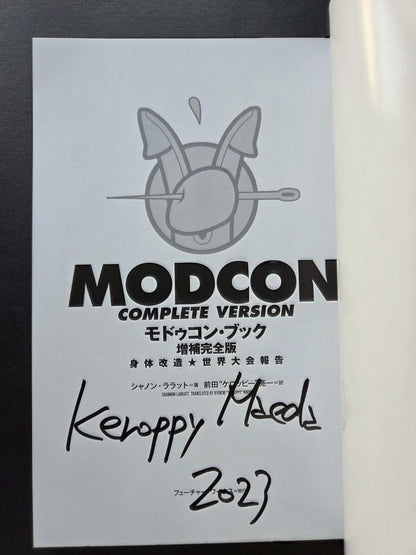 MODCON
COMPLETE VERSION
モドゥコン・ブック
増補完全版
身体改造★世界大会報告
シャノン・ララット=著 前田“ケロッピー”亮一=訳
SHANNON LARRATT TRANSLATED BY RYOICHI "KEROPPY" MAEDA
Keroppy Maeda
2023
フューチャー